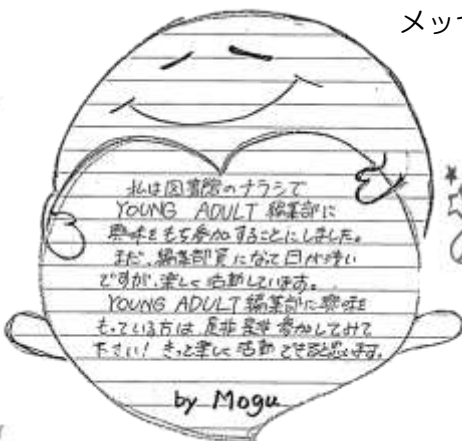 メッ
私は図書館のチラシで
YOUNG ADULT 編集部に
興味をもち参加することにしました。
まだ、編集部員になって日が浅い
ですが、楽しく活動しています。
YOUNG ADULT 編集部に興味を
もっている方は、是非是非参加してみて
下さい! きっと楽しく活動できると思います。
by Mogu